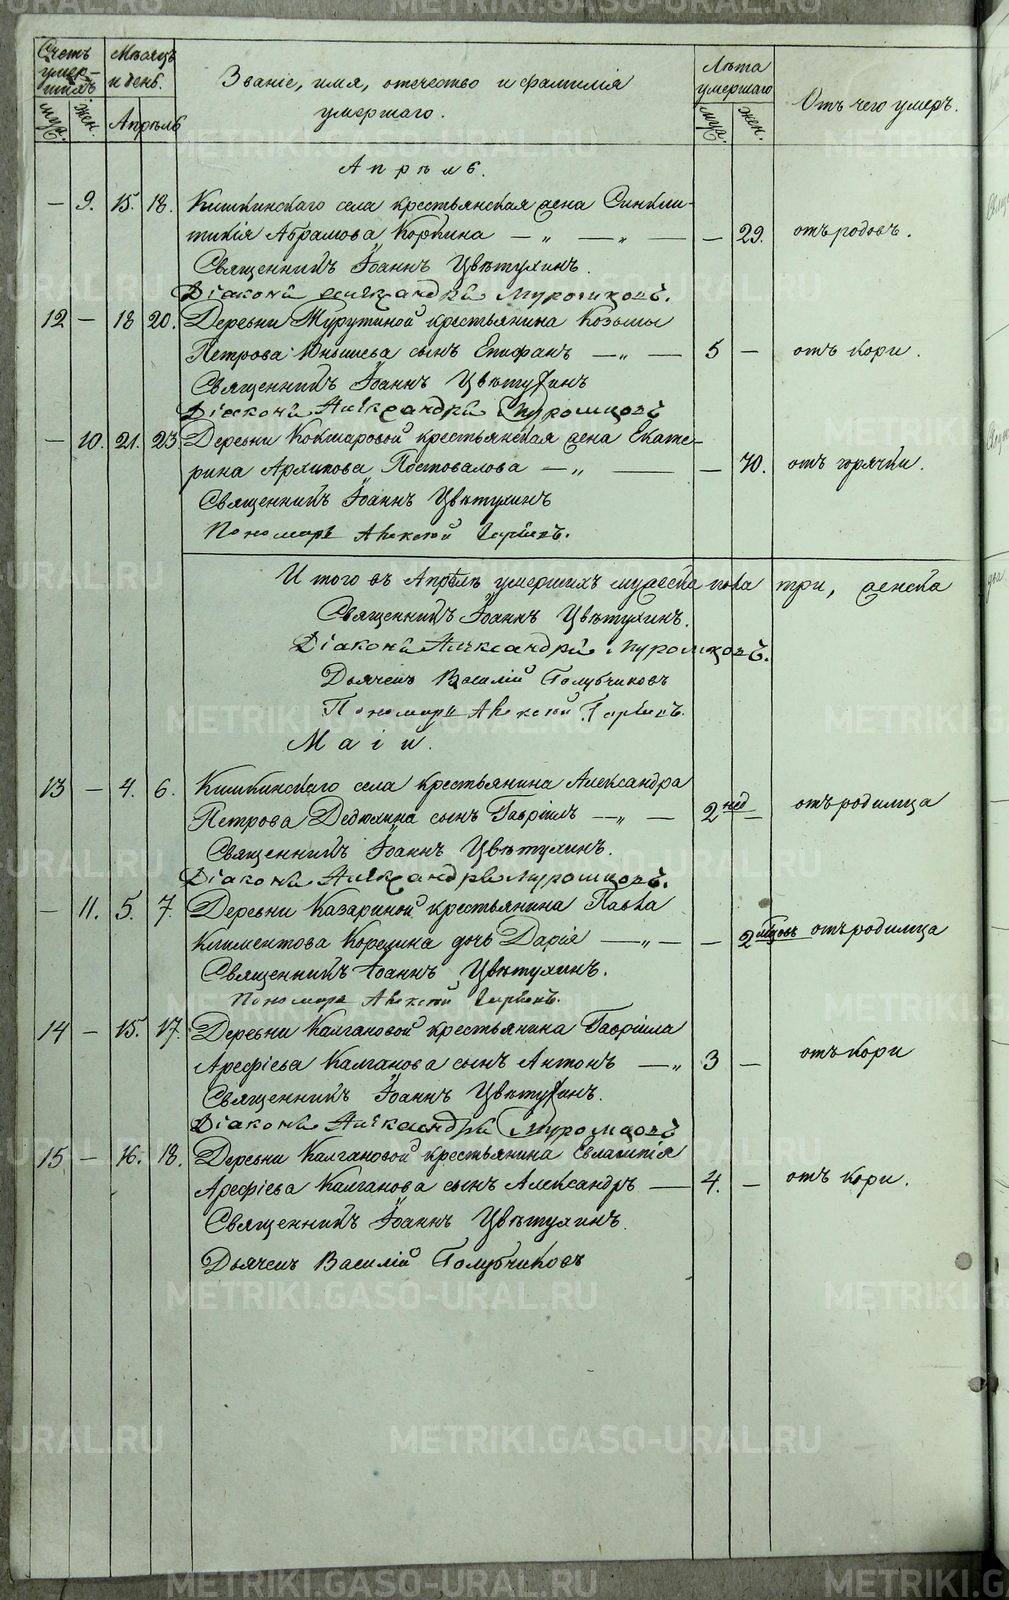 Счетъ умер-шихъ
Мѣсяцъ и день.
Званіе, имя, отчество и фамилія
умершаго.
Лѣта умершаго
Отъ чего умеръ.
муж. жен. Апрѣль муж. жен.
Апрѣль.
— 9. 15. 18. Кишкинскаго села крестьянская жена Синкли-
тикія Абрамова Коркина — „ — „ — — 29. отъ родовъ.
Священникъ Іоаннъ Цвѣтухинъ.
Діаконъ Александръ
12 — 18 20. Деревни Мурутиной крестьянина Козьмы
Петрова сынъ Епифанъ — „ — 5 — отъ кори.
Священникъ Іоаннъ Цвѣтухинъ
Діаконъ Александръ
— 10. 21. 23. Деревни Кокшаровой крестьянская жена Екате-
рина Архипова Постовалова — „ — — 70. отъ горячки.
Священникъ Іоаннъ Цвѣтухинъ
Пономарь
Итого въ Апрѣлѣ умершихъ мужеска пола три, женска
Священникъ Іоаннъ Цвѣтухинъ.
Діаконъ Александръ
Дьячекъ Василій Голубчиковъ
Пономарь
Маіи.
13 — 4. 6. Кишкинскаго села крестьянина Александра
Петрова Дедюхина сынъ Гавріилъ — „ — 2 нед — отъ родимца
Священникъ Іоаннъ Цвѣтухинъ.
Діаконъ Александръ
— 11. 5. 7. Деревни Казариной крестьянина Павла
Климентова дочь Дарія — „ — — 2 мѣсвъ отъ родимца
Священникъ Іоаннъ Цвѣтухинъ.
Пономарь
14 — 15. 17. Деревни Калгановой крестьянина Гавріила
Арефіева Калганова сынъ Антонъ — „ 3 — отъ кори
Священникъ Іоаннъ Цвѣтухинъ.
Діаконъ Александръ
15 — 16. 18. Деревни Калгановой крестьянина Евлампія
Арефіева Калганова сынъ Александръ — 4. — отъ кори.
Священникъ Іоаннъ Цвѣтухинъ.
Дьячекъ Василій Голубчиковъ
METRIKI.GASO-URAL.RU